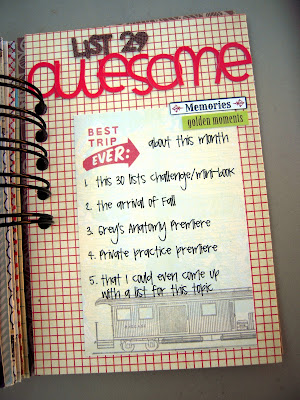 LIST 29
awesome
Memories
golden moments
BEST
TRIP
EVER:
about this month
1. this 30 lists challenge/mini-book
2. the arrival of Fall
3. Grey's Anatomy Premiere
4. Private practice premiere
5. that I could even come up
with a list for this topic